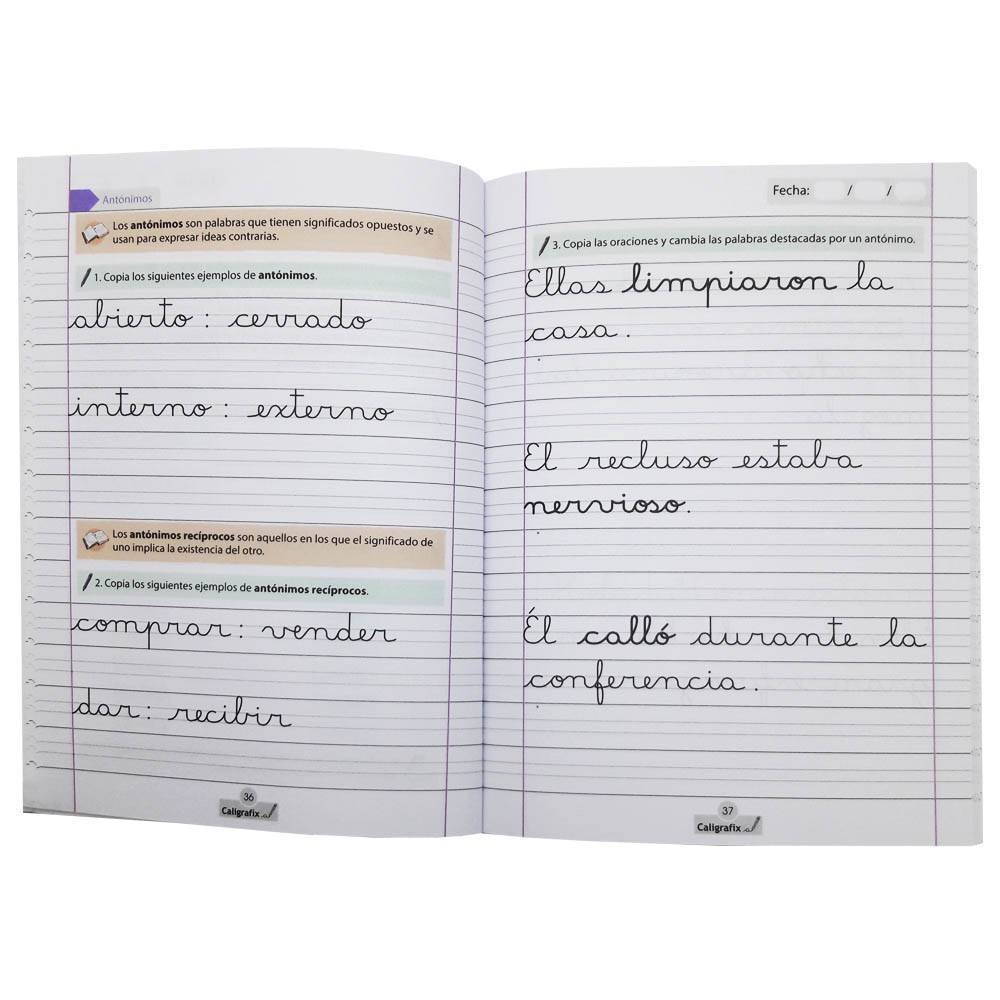 Antónimos
Los antónimos son palabras que tienen significados opuestos y se
usan para expresar ideas contrarias.
1. Copia los siguientes ejemplos de antónimos.
abierto : cerrado
interno : externo
Los antónimos recíprocos son aquellos en los que el significado de
uno implica la existencia del otro.
2. Copia los siguientes ejemplos de antónimos recíprocos.
comprar : vender
dar : recibir
36
Caligrafix
Fecha: / /
3. Copia las oraciones y cambia las palabras destacadas por un antónimo.
Ellas limpiaron la
casa.
El recluso estaba
nervioso.
Él calló durante la
conferencia.
37
Caligrafix